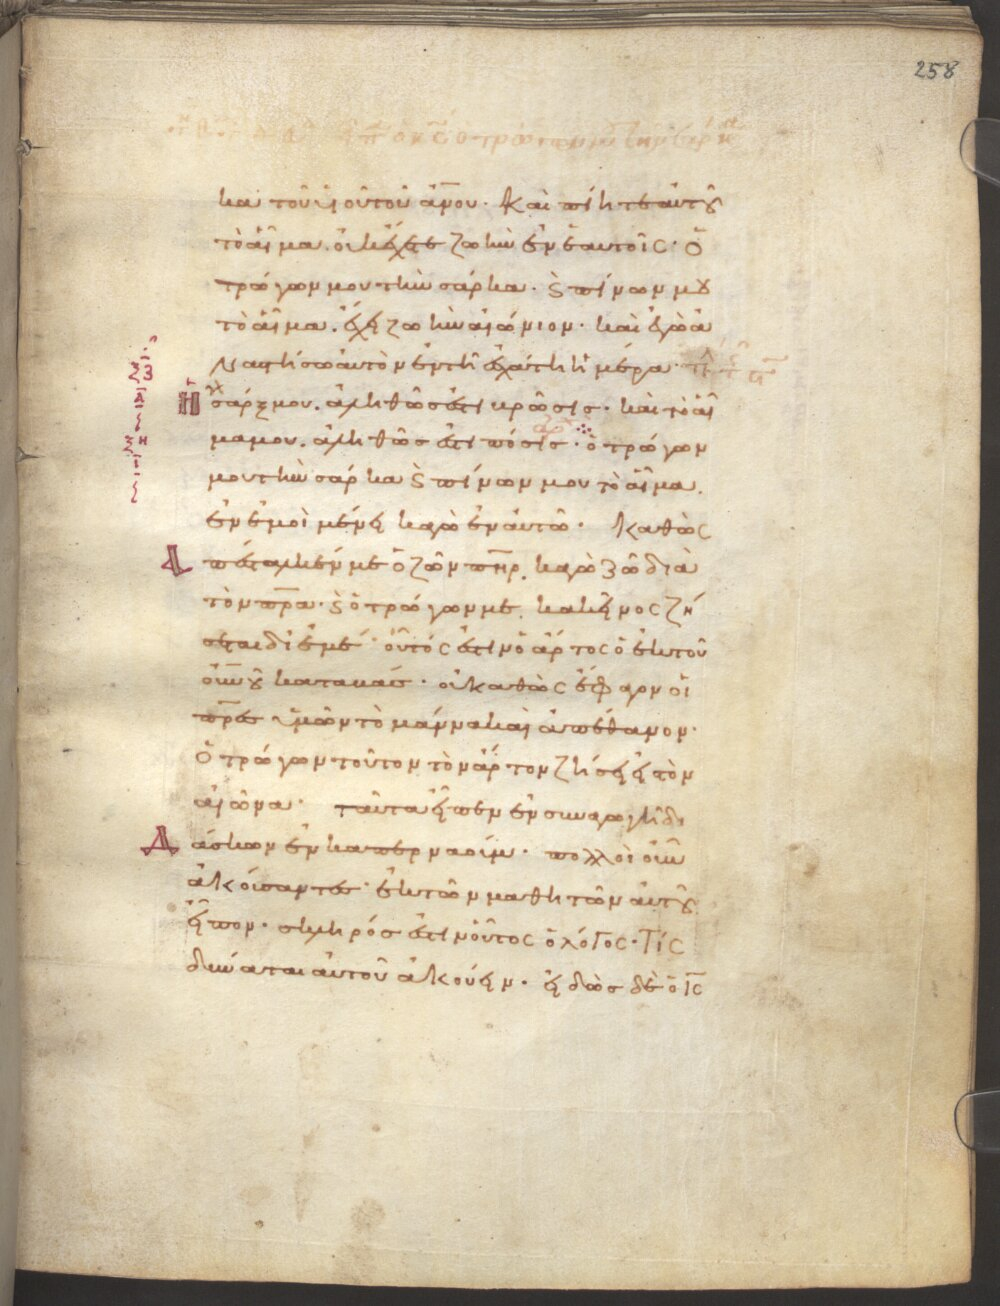 258
κα τοῦ υἱοῦ τοῦ ἀν̅ου· καὶ πίητε αὐτοῦ
τὸ αἷμα. οὐκ ἔχετε ζωὴν ἐν ἑαυτοῖς· ὁ
τρώγων μου τὴν σάρκα· ϗ πίνων μου
τὸ αἷμα. ἔχει ζωὴν αἰώνιον· καὶ ἐγὼ ἀ
ναστήσω αὐτὸν ἐν τῇ ἐσχάτῃ ἡμέρα·
Ἡ γὰρ σάρξ μου. ἀληθῶς ἐστι βρῶσις· καὶ τὸ αἷ
μα μου. ἀληθῶς ἐστι πόσις· ὁ τρώγων
μου τὴν σάρκα ϗ πίνων μου τὸ αἷμα.
ἐν ἐμοὶ μένει καγὼ ἐν αὐτῶ· Καθὼς
ἀπέσταλκέν με ὁ ζῶν πη̅ρ. καγὼ ζῶ διὰ
τὸν πρ̅α· ϗ ὁ τρώγων με. κακεῖνος ζή
σεται δι ἐμέ· οὗτός ἐστιν ὁ ἄρτος ὁ ἐκ τοῦ
οὐν̅οῦ καταβάς· οὐ καθὼς ἔφαγον οἱ
πρ̅ες ὑμῶν τὸ μάννα καὶ ἀπέθανον·
ὁ τρώγων τοῦτον τὸν ἄρτον ζήσει εἰς τὸν
αἰῶνα· ταῦτα εἶπεν ἐν συναγωγῆ δι
Δάσκων ἐν καπερναούμ· πολλοὶ οὖν
ἀκούσαντες· ἐκ τῶν μαθητῶν αὐτοῦ
εἶπον· σκληρός ἐστιν οὗτος ὁ λόγος· Τίς
δύναται αὐτοῦ ἀκούειν· εἰδὼς δὲ ὁ ι̅ς